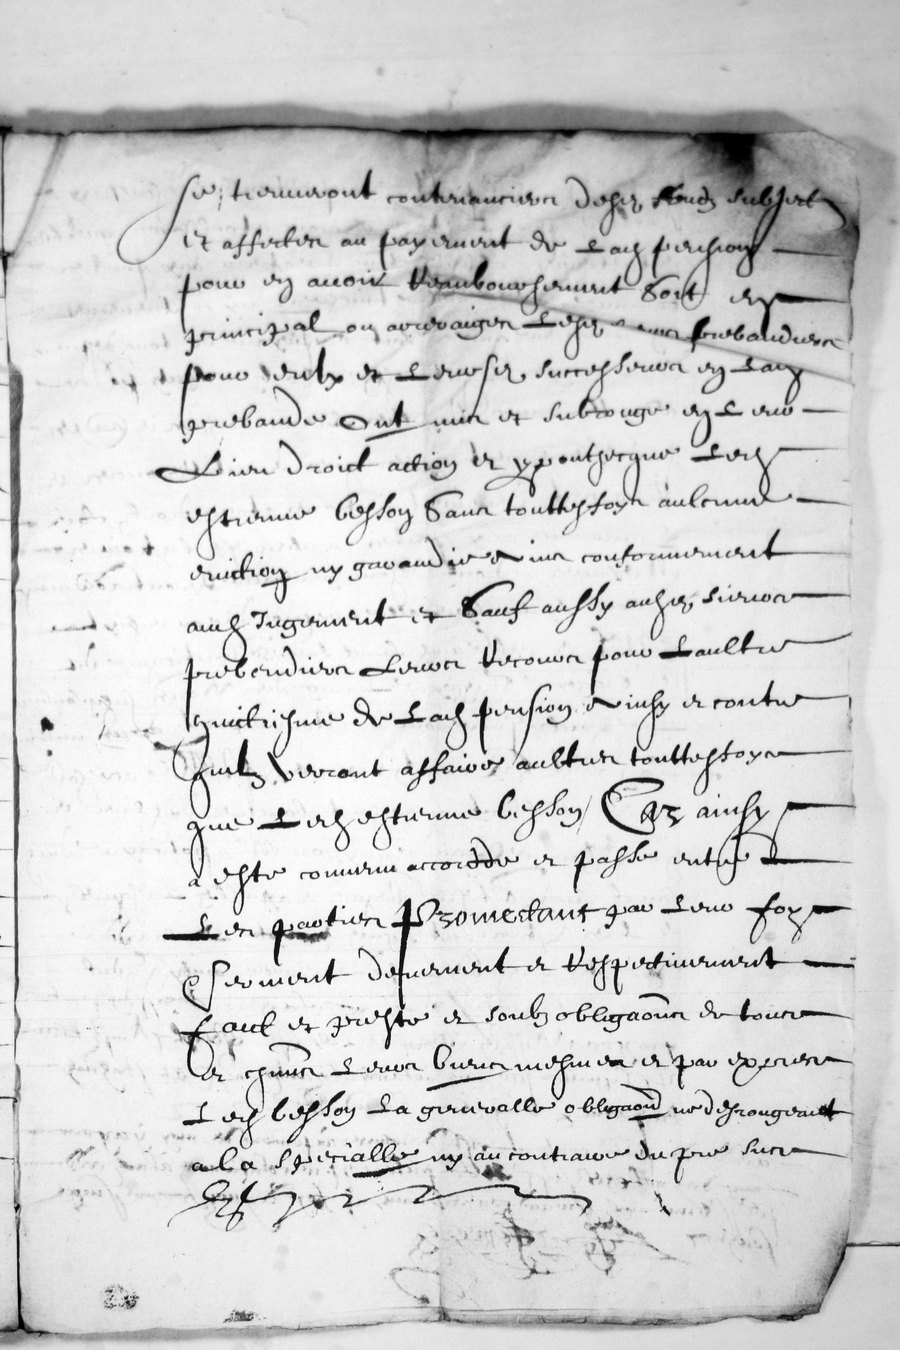 se treuveront contenanciers desd fondz subject
et affectes au payement de Lad pension
pour en avoir Reambourhement Soit en
principal ou arreraiges Lesd prebandiers
pour eulx et Leurs successeurs en Lad
prebande Ont mis et subrougé en Leur
Lieu droict action et ypouthecque Led
estienne besson Sans touttesfoys aulcune
eviction ny garandie Ains conformement
aud Jugement et Sauf aussy ausd sieurs
prebendiers Leurs Recours pour Laultre
huictiesme de Lad pension Ainsy et contre
quilz verront affaire aultres touttesfoys
que Led estienne besson / Et ainsy
a este convenu accordde et passe entre
Les parties Promectant par Leur foy
Serment deuement et Respectivement
faict et preste et soubz obligaons de tous
et chuns Leurs biens mesmes et par expres
Led besson La generalle obligaon ne desrougeant
a la specialle ny au contraire du pre sucre